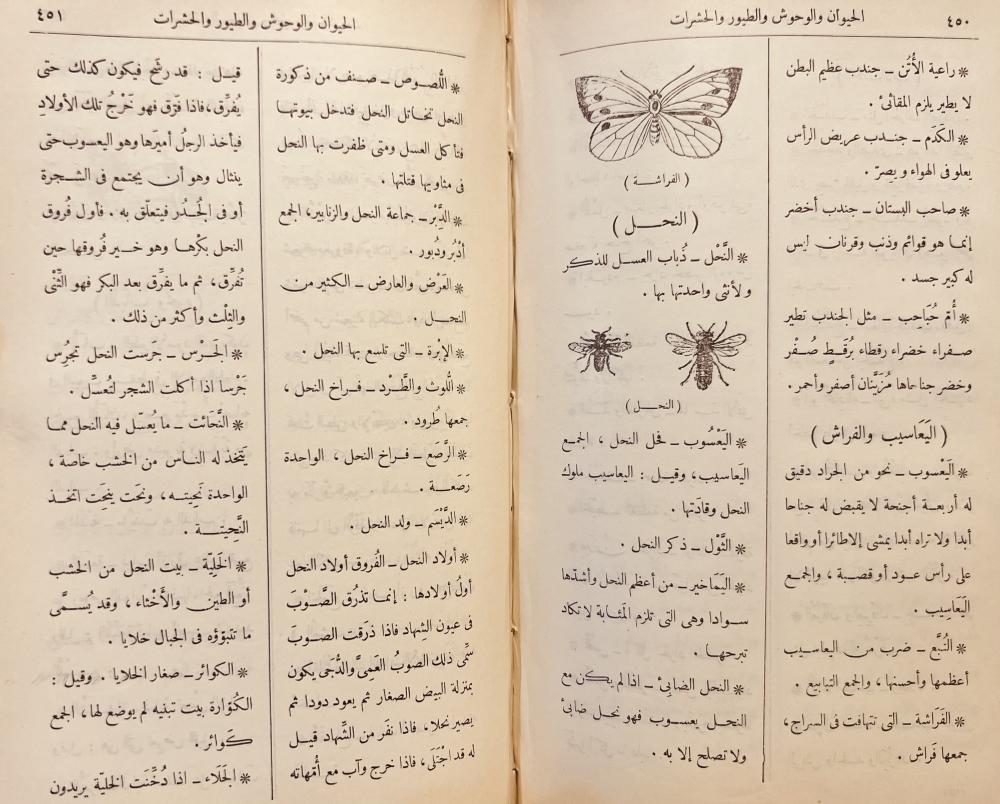 ٤٥٠
الحيوان والوحوش والطيور والحشرات
* راعية الأُتُن ــ جندب عظيم البطن
لا يطير يلزم المقاثئ .
* الكَدَم ــ جندب عريض الرأس
يعلو فى الهواء ويصرّ .
* صاحب البستان ــ جندب أخضر
إنما هو قوائم وذنب وقرنان ليس
له كبير جسد .
* أُمّ حُبَاحِب ــ مثل الجندب تطير
صفراء خضراء رقطاء بُرقَـطٍ صُفْر
وخضر جناحاها مُزَيَّنان أصفر وأحمر.
( اليَعَاسيب والفراش )
* اليَعْسوب ــ نحو من الجراد دقيق
له أربعة أجنحة لا يقبض له جناحا
أبدا ولا تراه أبدا يمشى إلا طائرا أو واقعا
على رأس عود أو قصبة ، والجمع
اليَعَاسِيب .
* التُّبَّع ــ ضرب من اليعاسيب
أعظمها وأحسنها ، والجمع التبابيع .
* الفَرَاشة ــ التى تتهافت فى السراج ،
جمعها فَراش .
( الفراشة )
( النحـل )
* النَّحْل ــ ذُباب العسل للذكر
ولأنثى واحدتها بها .
( النحـل )
* اليَعْسُوب ــ فحل النحل ، الجمع
اليَعاسيب ، وقيل : اليعاسيب ملوك
النحل وقادَتها .
* الثَّوْل ــ ذكر النحل .
* اليَمَاخير ــ من أعظم النحل وأشدّها
سوادا وهى التى تلزم المَثابة لا تكاد
تبرحها .
* النحل الضابئ ــ اذا لم يكن مع
النحل يعسوب فهو نحل ضابئ
ولا تصلح إلا به .
الحيوان والوحوش والطيور والحشرات
٤٥١
* اللُّصوص ــ صنف من ذكورة
النحل تخاتل النحل فتدخل بيوتها
فتأكل العسل ومتى ظفرت بها النحل
فى مثاويها قتلتها .
* الدَّبْر ــ جماعة النحل والزنابير، الجمع
أَدْبُر ودُبور .
* العَرْض والعارض ــ الكثير من
النحل .
* الإبْرة ــ التى تلسع بها النحل .
* اللُّوث والطَّرْد ــ فراخ النحل ،
جمعها طُرود .
* الرَّصَع ــ فراخ النحل ، الواحدة
رَصَعَة .
* الدَّيْسَم ــ ولد النحل .
* أولاد النحل ــ الفُروق أولاد النحل
أولُ أولادها : إنما تَذرُق الصَّوْبَ
فى عيون الشِهاد فاذا ذرَقت الصوبَ
سمّى ذلك الصوبُ العَمِىَّ والدُّجَى يكون
بمنزلة البيض الصغار ثم يعود دودا ثم
يصير نحلا . فاذا نفَر من الشِّهاد قيل
له قد اجْتَلَى ، فاذا خرج وآب مع أمّهاته
قيل : قد رشَّح فيكون كذلك حتى
يُفرِّق ، فاذا فرّق فهو خَرْجُ تلك الأولادِ
فيأخذ الرجلُ أميرَها وهو اليعسوب حتى
ينثال وهو أن يجتمع فى الشجرة
أو فى الجُدُر فيتعلّق به . فأول فُروق
النحل بكْرُها وهو خير فُروقها حين
تُفرِّق ، ثم ما يفرِّق بعد البكر فهو الثِّنْى
والثِلْث وأكثر من ذلك .
* الجَرْس ــ جَرَست النحل تَجرُس
جَرْسا اذا أكلت الشجر لتُعسِّل .
* النَّحائت ــ ما يُعسّل فيه النحل مما
يَتّخذ له الناس من الخشب خاصّة ،
الواحدة نَحِيتـه ، ونحَت ينحِت اتخذ
النَّحِيتـة .
* الخَلِيّة ــ بيت النحل من الخشب
أو الطين والأَخْثاء ، وقد يُسمَّى
ما تتبوّؤه فى الجبال خلايا .
* الكوائر ــ صغار الخلايا . وقيل :
الكُوّارة بيت تبنيه لم يوضع لها ، الجمع
كوائر .
* الجَلَاء ــ اذا دُخِّنَت الخليّة يريدون